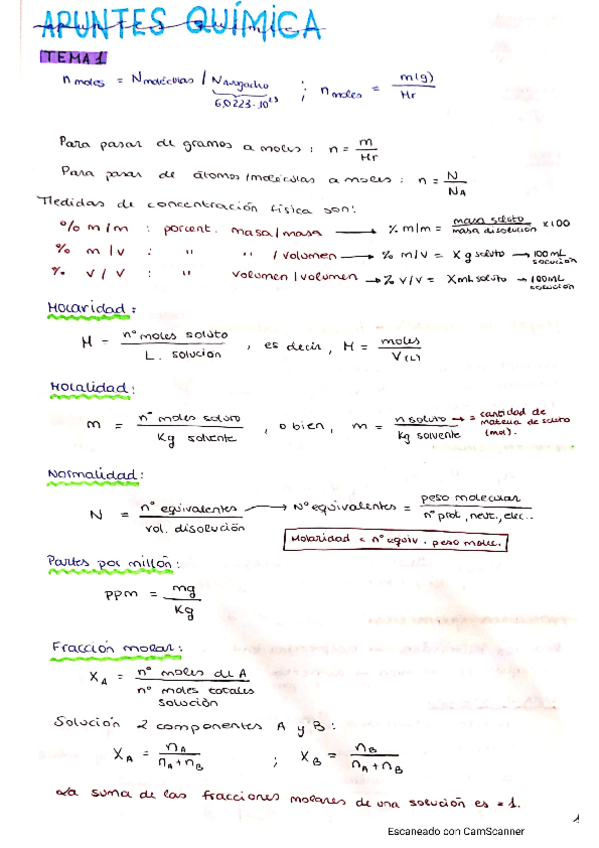 APUNTES QUÍMICA
TEMA 1
n moles = Nmoléculas / Navogadro ; n moles = m(g) / Mr
6,0223·10²³
Para pasar de gramos a moles : n = m / Mr
Para pasar de átomos/moléculas a moles : n = N / NA
Medidas de concentración física son:
% m/m : porcent. masa/masa → % m/m = masa soluto / masa disolución x100
% m/v : " " /volumen → % m/v = X g soluto → 100 mL solución
% v/v : " volumen/volumen → % v/v = X mL soluto → 100 mL solución
Molaridad:
M = nº moles soluto / L. solucion , es decir, M = moles / V(L)
Molalidad:
m = nº moles soluto / Kg solvente , o bien, m = n soluto / kg solvente → = cantidad de materia de soluto (mol).
Normalidad:
N = nº equivalentes / vol. disolución → Nº equivalentes = peso molecular / nº prot, neut., elec..
Molaridad = nº equiv · peso molec.
Partes por millón:
ppm = mg / Kg
Fracción molar:
XA = nº moles de A / nº moles totales solución
Solución 2 componentes A y B:
XA = nA / nA+nB ; XB = nB / nA+nB
La suma de las fracciones molares de una solución es = 1.
1
Escaneado con CamScanner